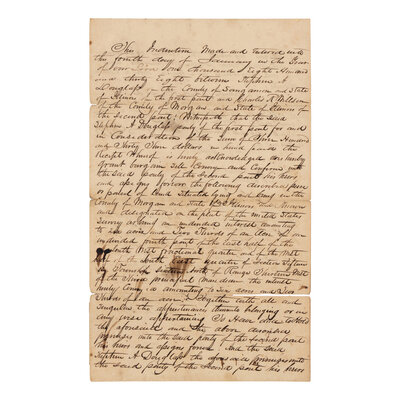 This Indenture Made and Entered into
the fourth day of January in the Year
of our Lord one thousand Eight Hundred
and thirty Eight between Stephen A
Douglass of the County of Sangamon and State
of Illinois of the first part and Charles R
of the County of Morgan and State of Illinois of
the Second part: Witnesseth that the Said
Stephen A Douglass party of the first part for and
in Consideration of the Sum of Hundred
and dollars in hand paid the
Receipt Whereof is hereby acknowledged does hereby
Grant bargain Sell Convey and Confirm unto
the Said party of the Second part his heirs
and assigns forever the following described piece
or parcel of land Situate lying and being in the
County of Morgan and State of Illinois and Known
and designated on the plat of the United States
Survey as an undivided interest amounting
to Six acres and Two Thirds of an acre of an
undivided fourth part of the East half of the
West fractional quarter and of the West
half of the South East quarter of Section
in Township Sixteen North of Range West
of the Third principal Meridian the interest
hereby Conveyed amounting to Six acres and Two
Thirds of an acre; Together with all and
Singular the appurtenances thereto belonging or in
any wise appertaining To Have and to Hold
the aforesaid and the above described
premises unto the Said party of the Second part
his heirs and assigns forever And the Said
Stephen A Douglass the aforesaid premises unto
the Said party of the Second part his heirs